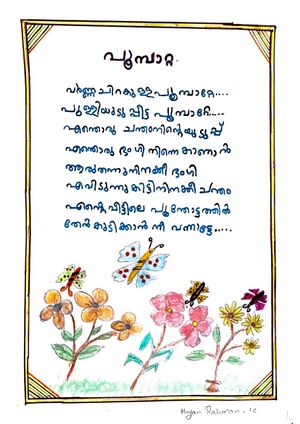 പൂമ്പാറ്റ
വർണ്ണചിറകുള്ള പൂമ്പാറ്റേ....
പുള്ളിയുടുപ്പിട്ട പൂമ്പാറ്റേ....
എന്തൊരു ചന്തംനിന്റെയുടുപ്പ്
എന്തൊരു ഭംഗി നിന്നെ കാണാൻ
ആരുതന്നുനിനക്കീ ഭംഗി
എവിടുന്നുകിട്ടിനിനക്കീ ചന്തം
എന്റെവീട്ടിലെ പൂന്തോട്ടത്തിൽ
തേൻകുടിക്കാൻ നീ വന്നാട്ടേ.....
Rahman - 1C